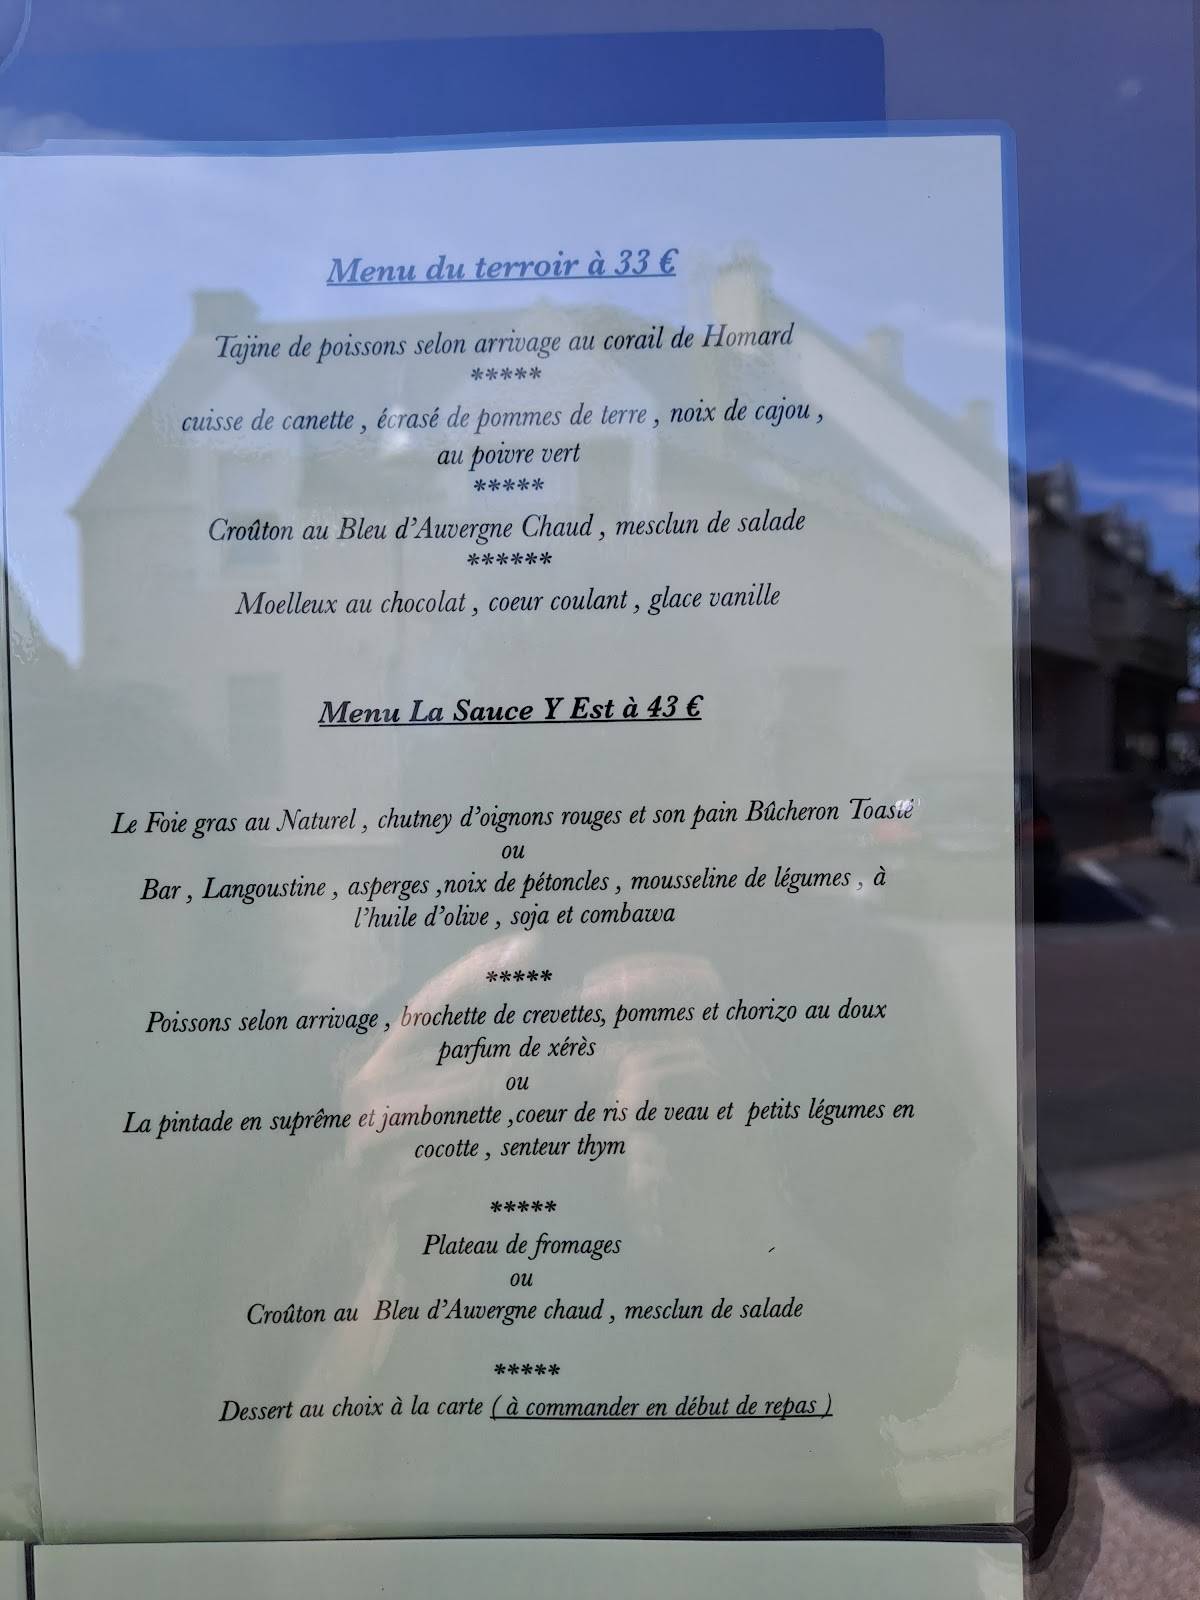 Menu du terroir à 33 €
Tajine de poissons selon arrivage au corail de Homard
*****
cuisse de canette , écrasé de pommes de terre , noix de cajou ,
au poivre vert
*****
Croûton au Bleu d'Auvergne Chaud , mesclun de salade
******
Moelleux au chocolat , coeur coulant , glace vanille
Menu La Sauce Y Est à 43 €
Le Foie gras au Naturel , chutney d'oignons rouges et son pain Bûcheron Toasté
ou
Bar , Langoustine , asperges ,noix de pétoncles , mousseline de légumes , à
l'huile d'olive , soja et combawa
*****
Poissons selon arrivage , brochette de crevettes, pommes et chorizo au doux
parfum de xérès
ou
La pintade en suprême et jambonnette ,coeur de ris de veau et petits légumes en
cocotte , senteur thym
*****
Plateau de fromages
ou
Croûton au Bleu d'Auvergne chaud , mesclun de salade
*****
Dessert au choix à la carte ( à commander en début de repas )